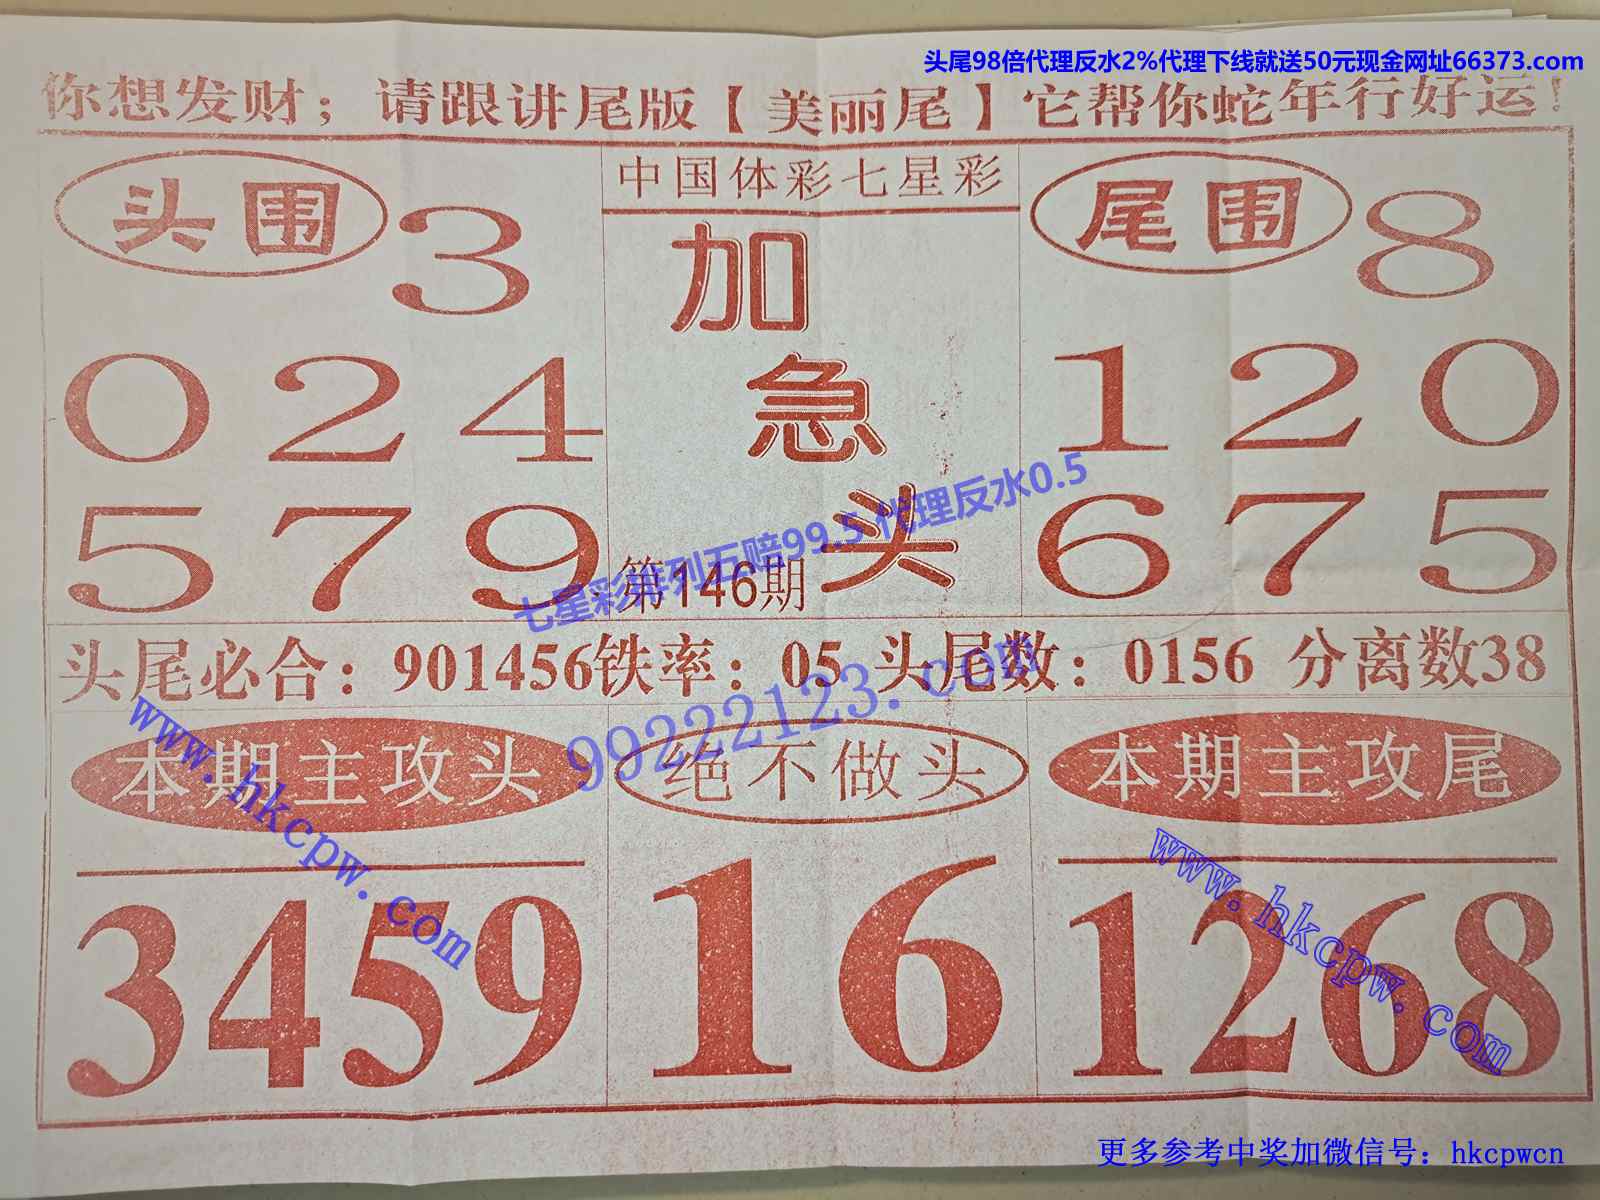 头尾98倍代理反水2%代理下线就送50元现金网址66373.com
你想发财；请跟讲尾版【美丽尾】它帮你蛇年行好运！
头围
3
0 2 4
5 7 9
中国体彩七星彩
加
急
头
第146期
尾围
8
1 2 0
6 7 5
七星彩排列五赔99.5 代理反水0.5
头尾必合：901456铁率：05 头尾数：0156 分离数38
99222123.com
本期主攻头
3459
绝不做头
16
本期主攻尾
1268
www.hkcpw.com
www.hkcpw.com
更多参考中奖加微信号：hkcpwcn